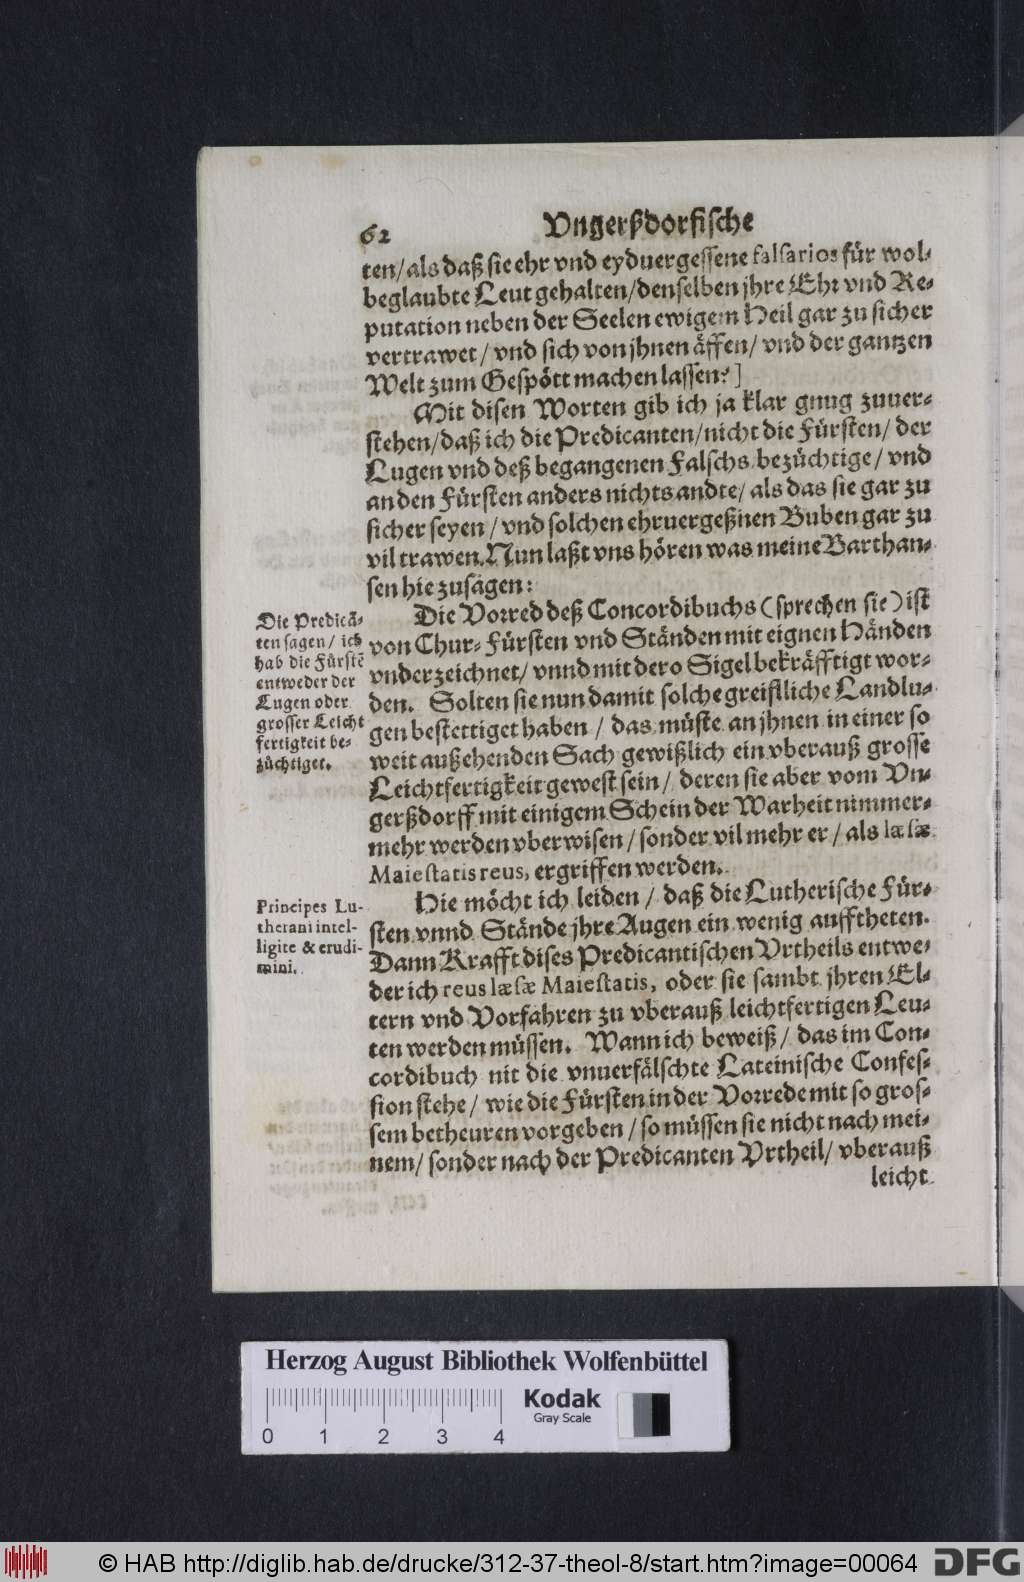 62
Vngerßdorfische
ten/ als daß sie ehr vnd eyduergessene falsarios für wol-
beglaubte Leut gehalten/ denselben jhre Ehr vnd Re-
putation neben der Seelen ewigem Heil gar zu sicher
vertrawet/ vnd sich von jhnen äffen/ vnd der gantzen
Welt zum Gespött machen lassen?]
Mit disen Worten gib ich ja klar gnug zuuer-
stehen/ daß ich die Predicanten/ nicht die Fürsten/ der
Lugen vnd deß begangenen Falschs bezüchtige/ vnd
an den Fürsten anders nichts andte/ als das sie gar zu
sicher seyen/ vnd solchen ehruergeßnen Buben gar zu
vil trawen. Nun laßt vns hören was meine Barthan-
sen hie zusagen:
Die Vorred deß Concordibuchs (sprechen sie) ist
von Chur- Fürsten vnd Ständen mit eignen Händen
vnderzeichnet/ vnnd mit dero Sigel bekräfftigt wor-
den. Solten sie nun damit solche greiflliche Landlu-
gen bestettiget haben/ das müste an jhnen in einer so
weit außehenden Sach gewißlich ein vberauß grosse
Leichtfertigkeit gewest sein/ deren sie aber vom Vn-
gerßdorff mit einigem Schein der Warheit nimmer-
mehr werden vberwisen/ sonder vil mehr er/ als læsæ
Maiestatis reus, ergriffen werden.
Die Predicā-
ten sagen/ ich
hab die Fürstē
entweder der
Lugen oder
grosser Leicht
fertigkeit be-
züchtiget.
Hie möcht ich leiden/ daß die Lutherische Für-
sten vnnd Stände jhre Augen ein wenig aufftheten.
Dann Krafft dises Predicantischen Vrtheils entwe-
der ich reus læsæ Maiestatis, oder sie sambt jhren El-
tern vnd Vorfahren zu vberauß leichtfertigen Leu-
ten werden müssen. Wann ich beweiß/ das im Con-
cordibuch nit die vnuerfälschte Lateinische Confes-
sion stehe/ wie die Fürsten in der Vorrede mit so gros-
sem betheuren vorgeben/ so müssen sie nicht nach mei-
nem/ sonder nach der Predicanten Vrtheil/ vberauß
leicht
Principes Lu-
therani intel-
ligite & erudi-
mini.
Herzog August Bibliothek Wolfenbüttel
Kodak
Gray Scale
0 1 2 3 4
© HAB http://diglib.hab.de/drucke/312-37-theol-8/start.htm?image=00064
DFG